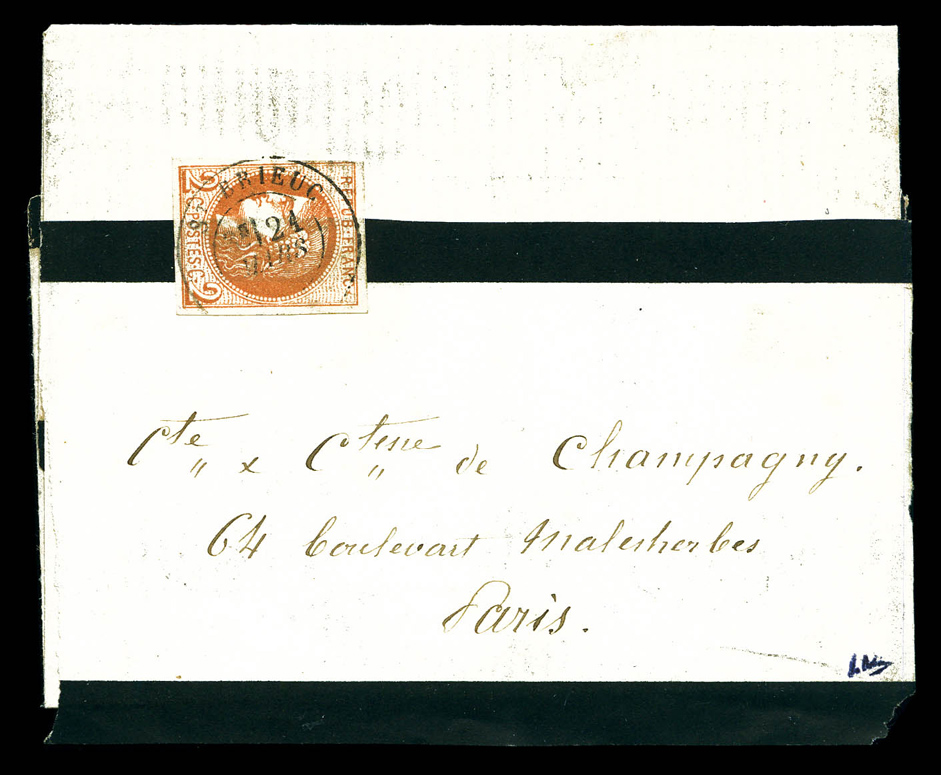 BRIEUC
21
MARS
2 C. POSTES 2
REPUB FRANC
Cte & Ctesse de Champagny.
64 boulevart Malesherbes
Paris.